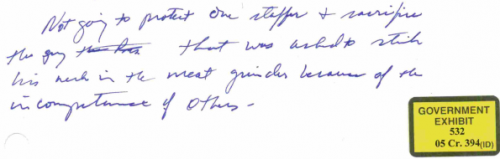 Not going to protect one staffer + sacrifice
the guy that was asked to stick
his neck in the meat grinder because of the
incompetence of others -
GOVERNMENT
EXHIBIT
532
05 Cr. 394(ID)